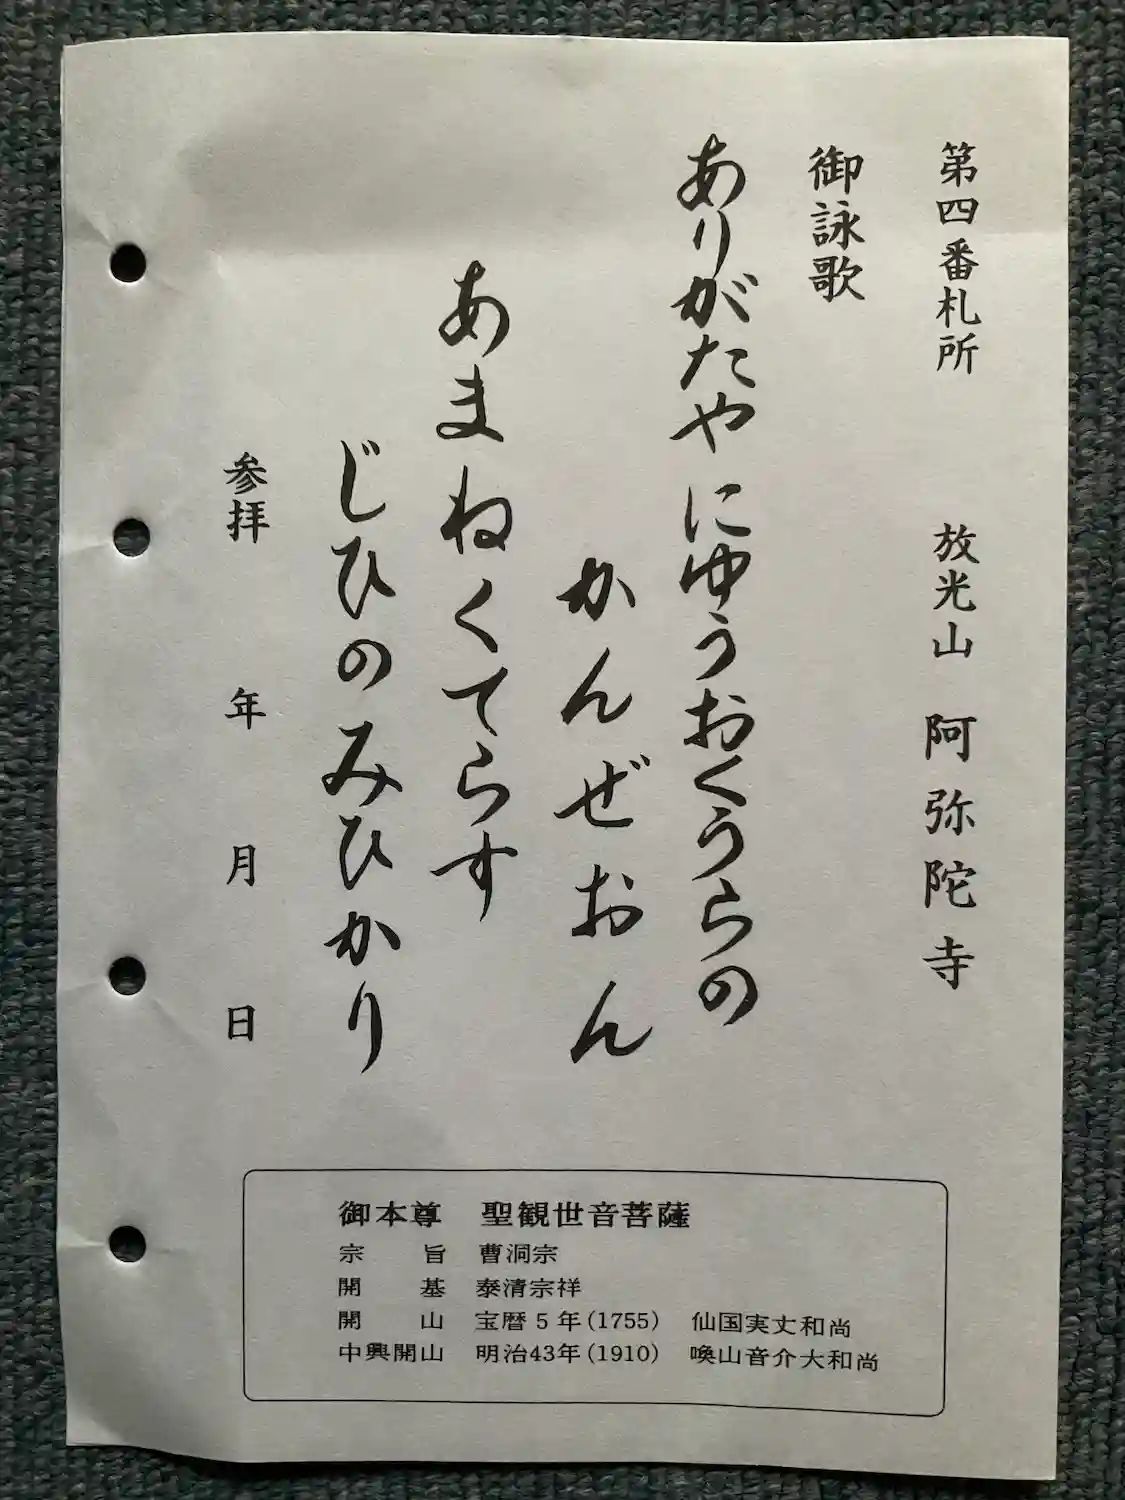 第四番札所　放光山　阿弥陀寺
御詠歌
ありがたや にゆうおくうらの
かんぜおん
あまねくてらす
じひのみひかり
参拝　年　月　日
御本尊　聖観世音菩薩
宗旨　曹洞宗
開基　泰清宗祥
開山　宝暦5年(1755)　仙国実丈和尚
中興開山　明治43年(1910)　喚山音介大和尚